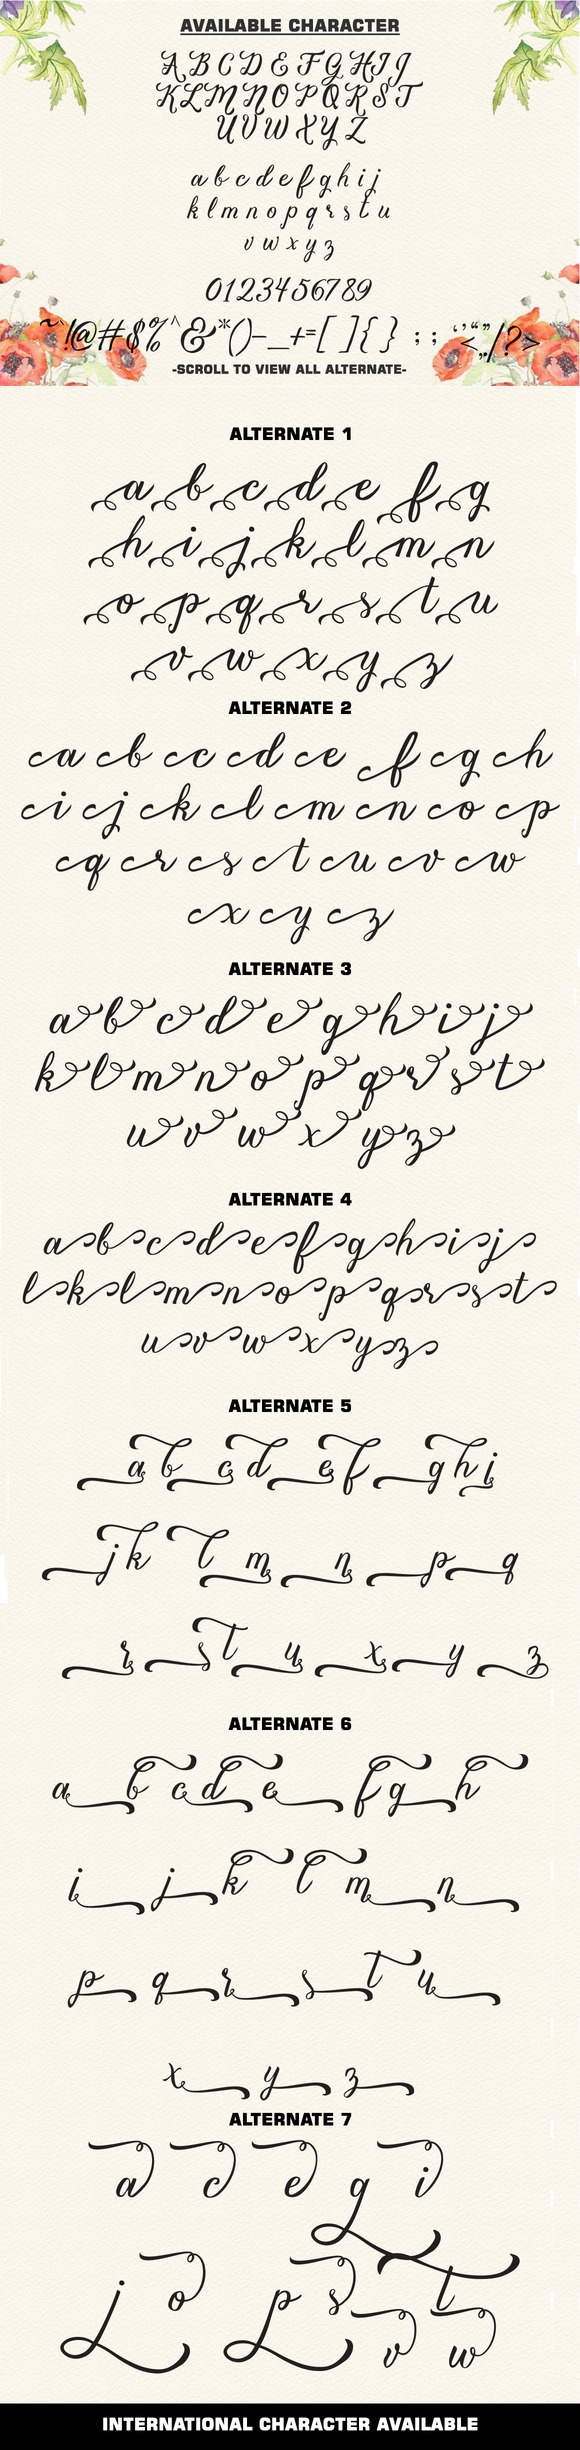 AVAILABLE CHARACTER
A B C D E F G H I J
K L M N O P Q R S T
U V W X Y Z
a b c d e f g h i j
k l m n o p q r s t u
v w x y z
0123456789
~`!@#$%^&*()-_+=[ ]{ } ; : ‘ ’ “ ” < , . / ? >
-SCROLL TO VIEW ALL ALTERNATE-
ALTERNATE 1
a b c d e f g
h i j k l m n
o p q r s t u
v w x y z
ALTERNATE 2
ca cb cc cd ce cf cg ch
ci cj ck cl cm cn co cp
cq cr cs ct cu cv cw
cx cy cz
ALTERNATE 3
a b c d e g h i j
k l m n o p q r s t
u v w x y z
ALTERNATE 4
a b c d e f g h i j
l k l m n o p q r s t
u v w x y z
ALTERNATE 5
a b c d e f g h i
j k l m n p q
r s t u x y z
ALTERNATE 6
a b c d e f g h
i j k l m n
p q r s t u
x y z
ALTERNATE 7
a c e g i
j o p s t
v w
INTERNATIONAL CHARACTER AVAILABLE